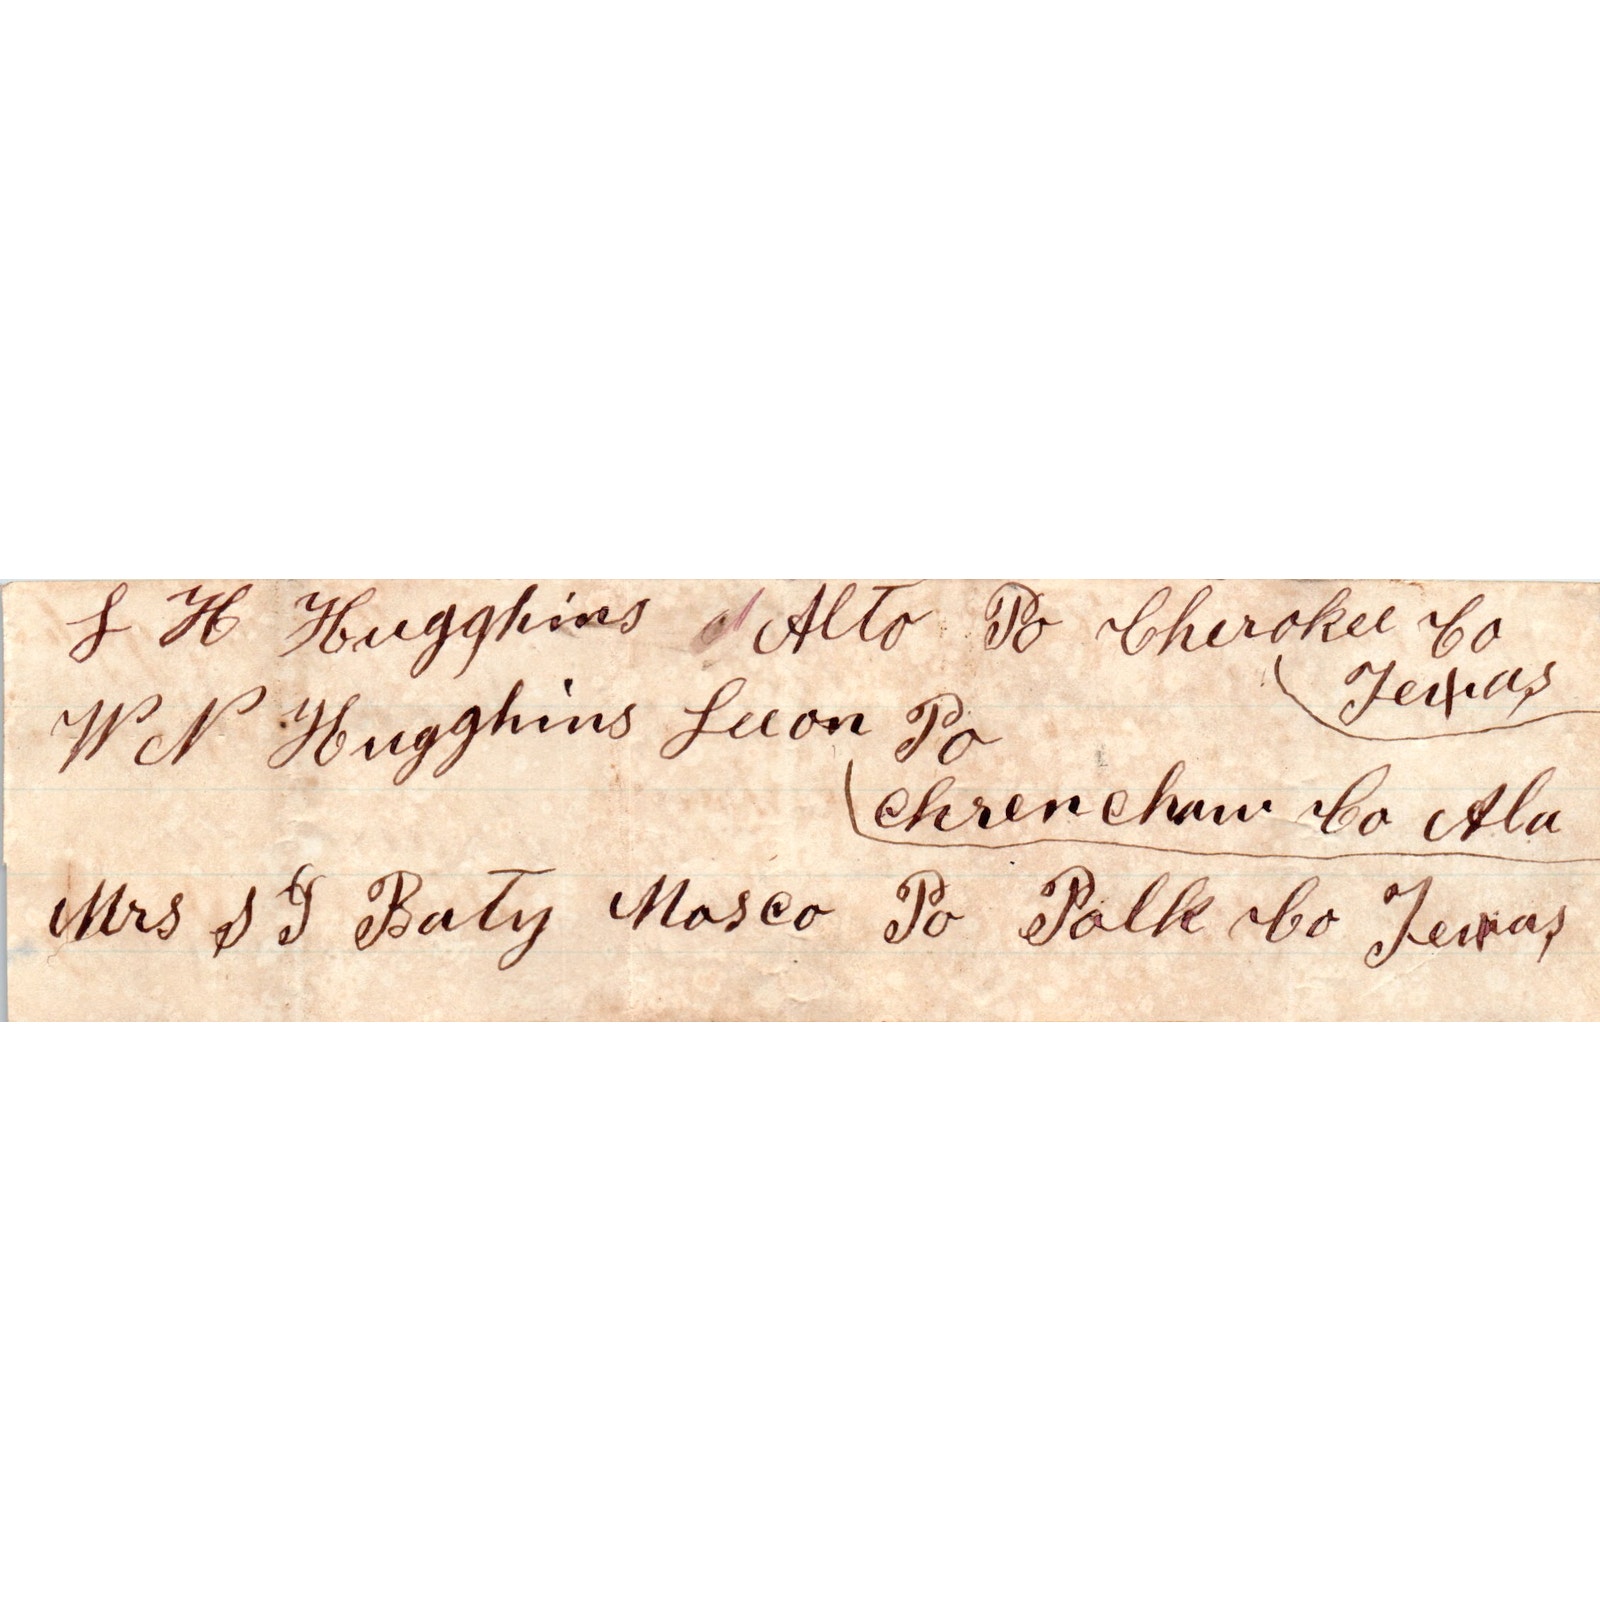 L H Hugghins Alto Po Cherokee Co
Texas
W N Hugghins Leeon Po
Chrenchaw Co Ala
Mrs S T Baty Mosco Po Polk Co Texas